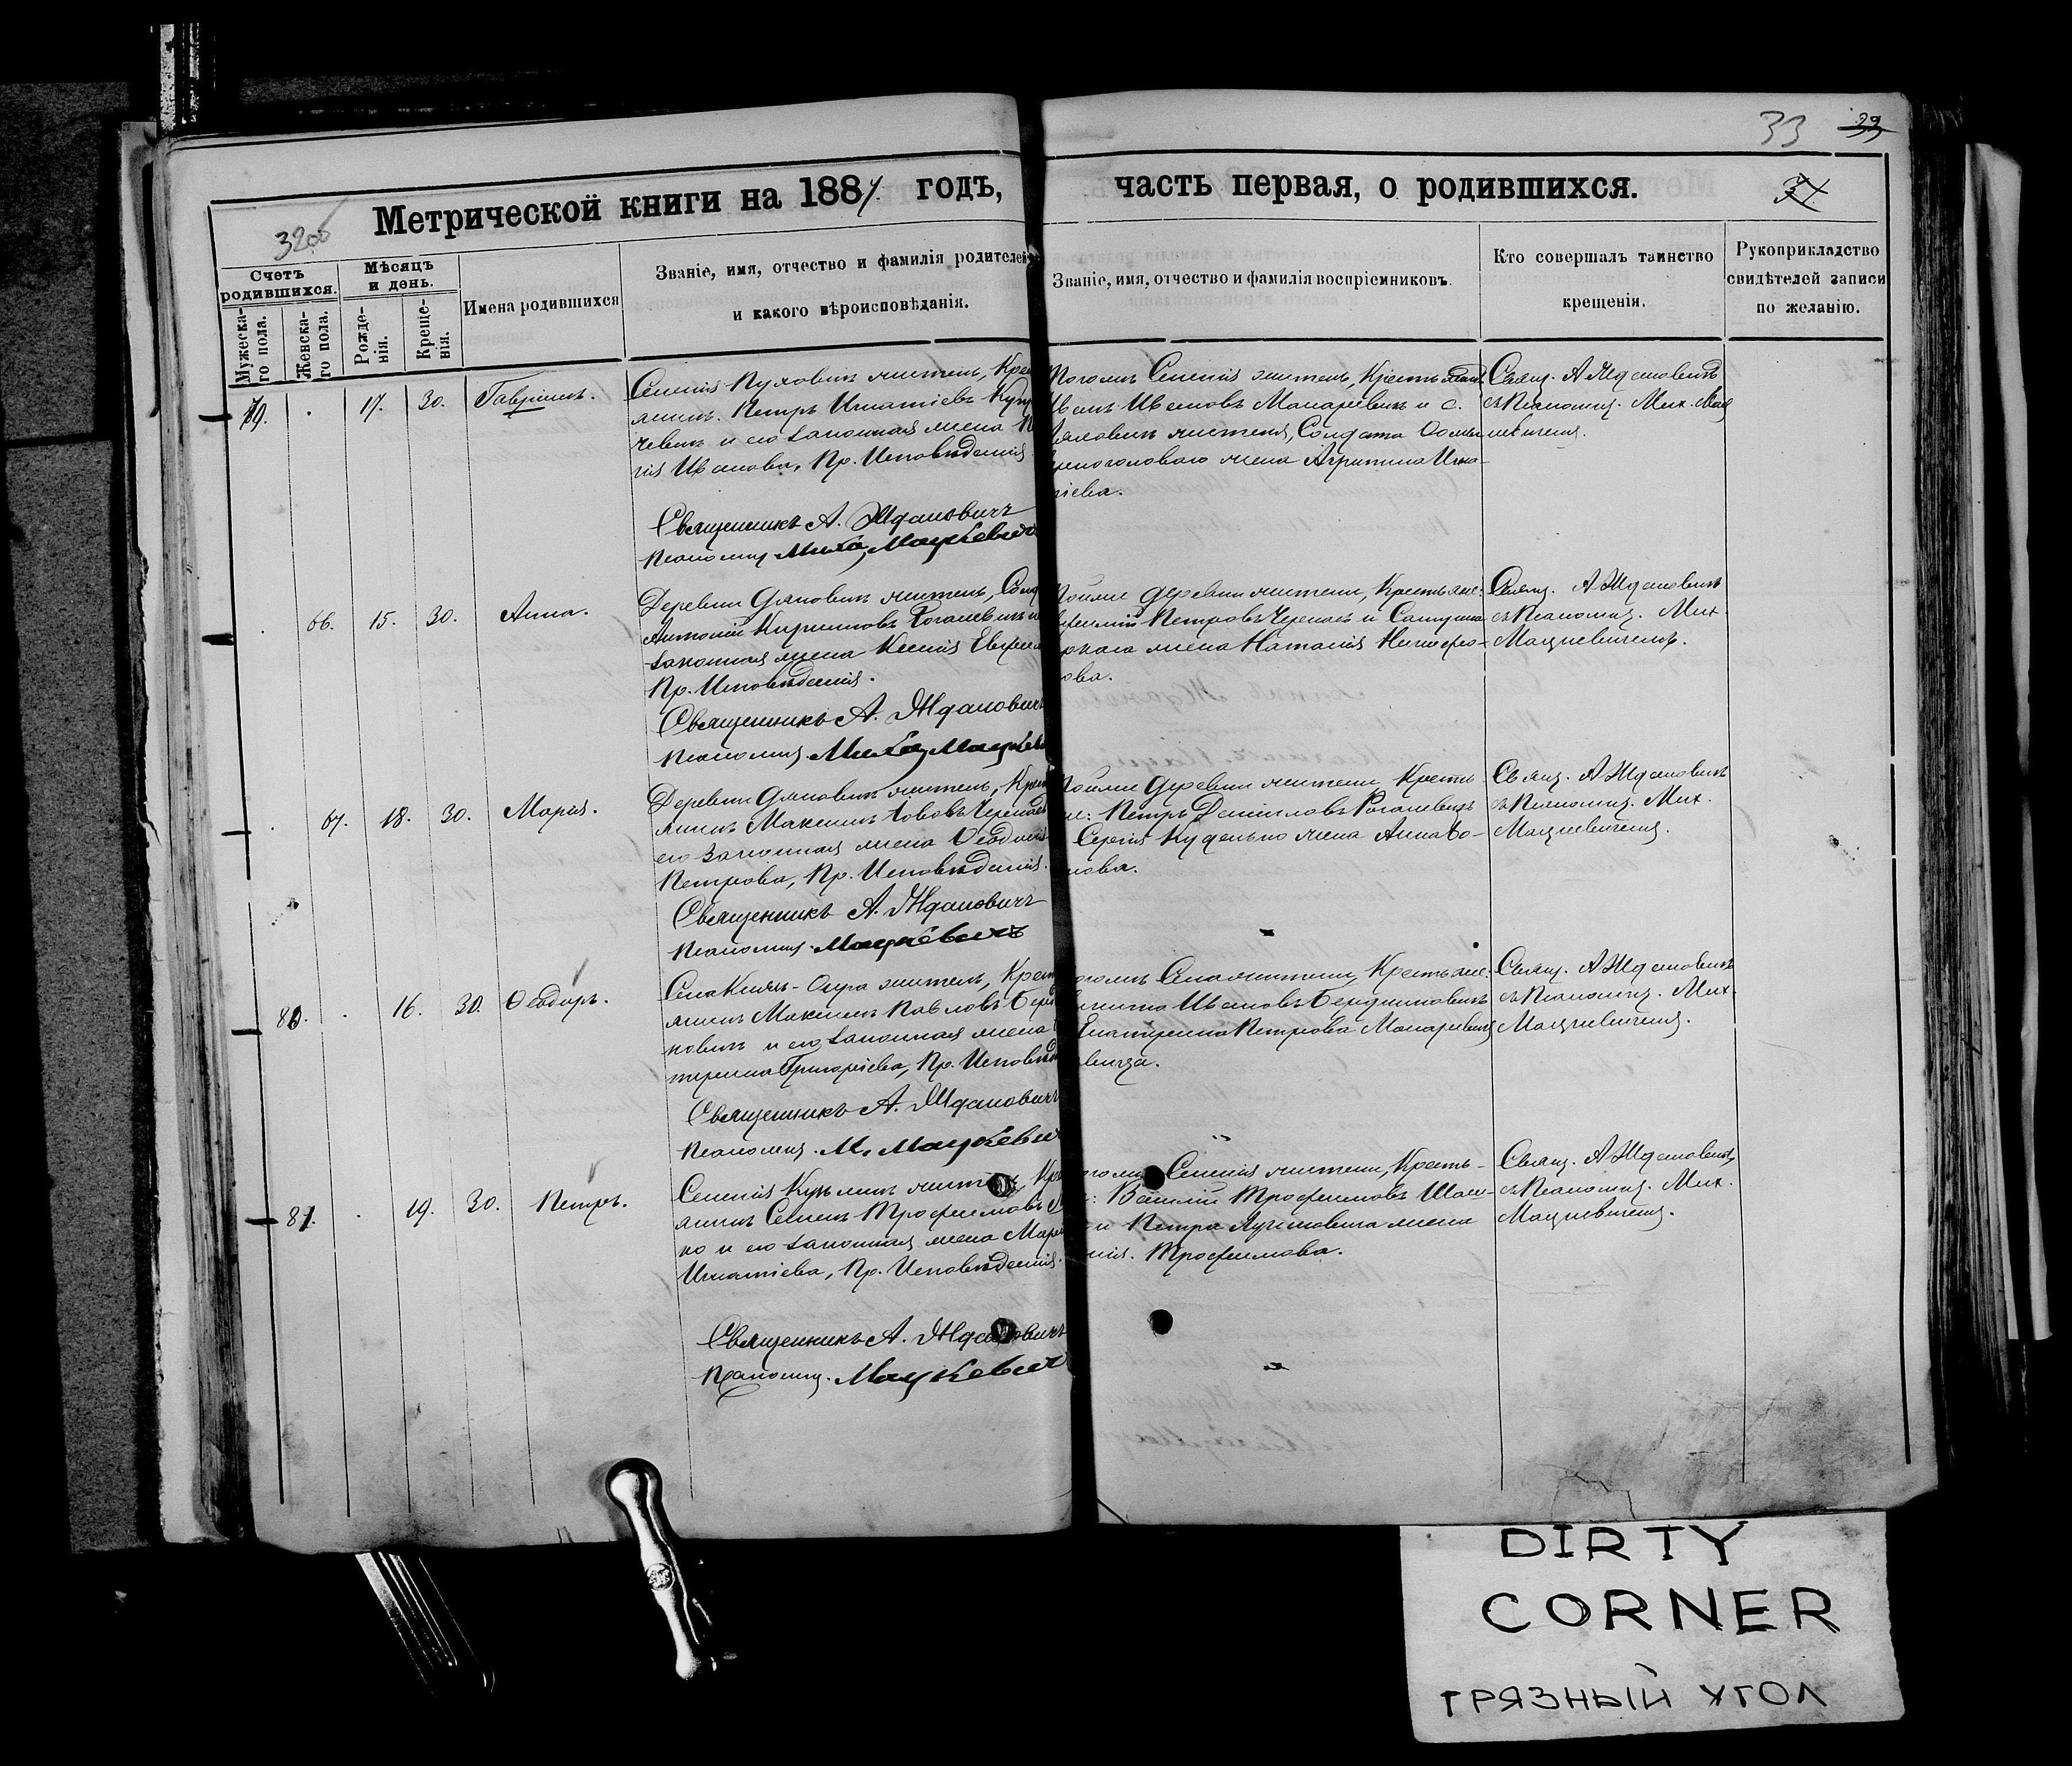 33 39
Метрической книги на 1884. годъ, часть первая, о родившихся.
32об
Счетъ родившихся.
Мѣсяцъ и день.
Имена родившихся
Званіе, имя, отчество и фамилія родителей
и какого вѣроисповѣданія.
Званіе, имя, отчество и фамилія воспріемниковъ.
Кто совершалъ таинство
крещенія.
Рукоприкладство
свидѣтелей записи
по желанію.
Мужеска-
го пола.
Женска-
го пола.
Рожде-
нія.
Креще-
нія.
79. . 17. 30. Гавріилъ.
Селенія Пуховичъ житель, Крес
янинъ. Петръ Игнатіевъ
чевичъ и его законная жена
Иванова, Пр. Исповѣданія
Священникъ А. Ждановичъ
Псаломщ. Миха Мацкевичъ
Тогожъ Селенія житель, Крестьян
Иванъ Ивановъ Макаревичъ и с.
жителя, Солдата
жена Агрипина Игна-
тіева.
Свящ. А Ждановичъ
съ Псаломщ. Мих. Мац
кевичемъ.
. 66. 15. 30. Анна.
Деревни Дяковичъ житель, Солд
Антоній Кириловъ Рогалевичъ и
законная жена Ксенія Евфим
Пр. Исповѣданія.
Священникъ А. Ждановичъ
Псаломщ. Миха Мацкев
Тойже деревни жители, Крестьяне:
Петровъ Черпакъ и
жена Наталія Никифо-
рова.
Свящ. А Ждановичъ
съ Псаломщ. Мих.
Мацкевичемъ.
. 67. 18. 30. Марія.
Деревни Дяковичъ житель, Крест
янинъ Максимъ Іововъ Черпакъ
его законная жена Ѳеодосія
Петрова, Пр. Исповѣданія.
Священникъ А. Ждановичъ
Псаломщ. Мацкевичъ
Тойже деревни жители, Кресть-
яне: Петръ Даніиловъ Рогалевичъ
Сергія Куделько жена Анна
Свящ. А Ждановичъ
съ Псаломщ. Мих.
Мацкевичемъ.
80. . 16. 30. Ѳеодоръ.
Села Князь-Озера житель, Крест
янинъ Максимъ Павловъ Берд
ковичъ и его законная жена
терина Григоріева, Пр. Исповѣд
Священникъ А. Ждановичъ
Псаломщ. М. Мацкевич
тогожъ Села жители, Крестьяне:
Никита Ивановъ
Екатерина Петрова Макаревич
Свящ. А Ждановичъ
съ Псаломщ. Мих.
Мацкевичемъ.
81. . 19. 30. Петръ.
Селенія Кузьмичъ житель, Кр
янинъ Семенъ Трофимовъ
ко и его законная жена Марі
Игнатіева, Пр. Исповѣданія.
Священникъ А. Ждановичъ
Псаломщ. Мацкевич
тогожъ Селенія жители, Кресть-
яне: Василій Трофимовъ
и Петра жена
Трофимова.
Свящ. А Ждановичъ,
съ Псаломщ. Мих.
Мацкевичемъ.
DIRTY
CORNER
ГРЯЗНЫЙ УГОЛ